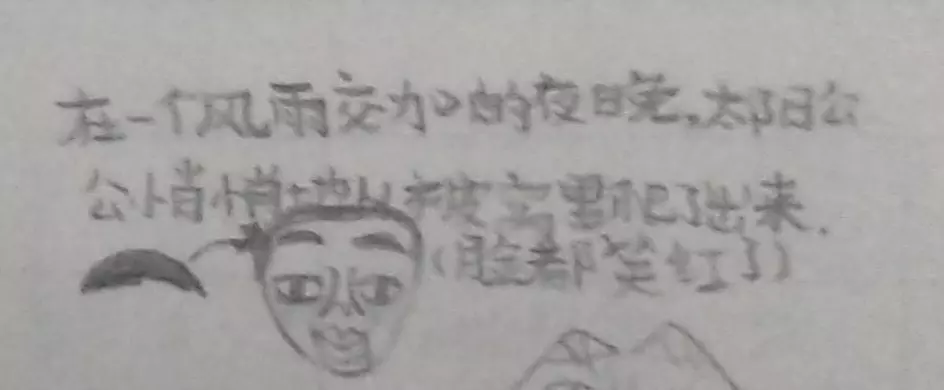 在一个风雨交加的夜晚,太阳公
公悄悄地从被窝里爬了出来.
(脸都笑红了)